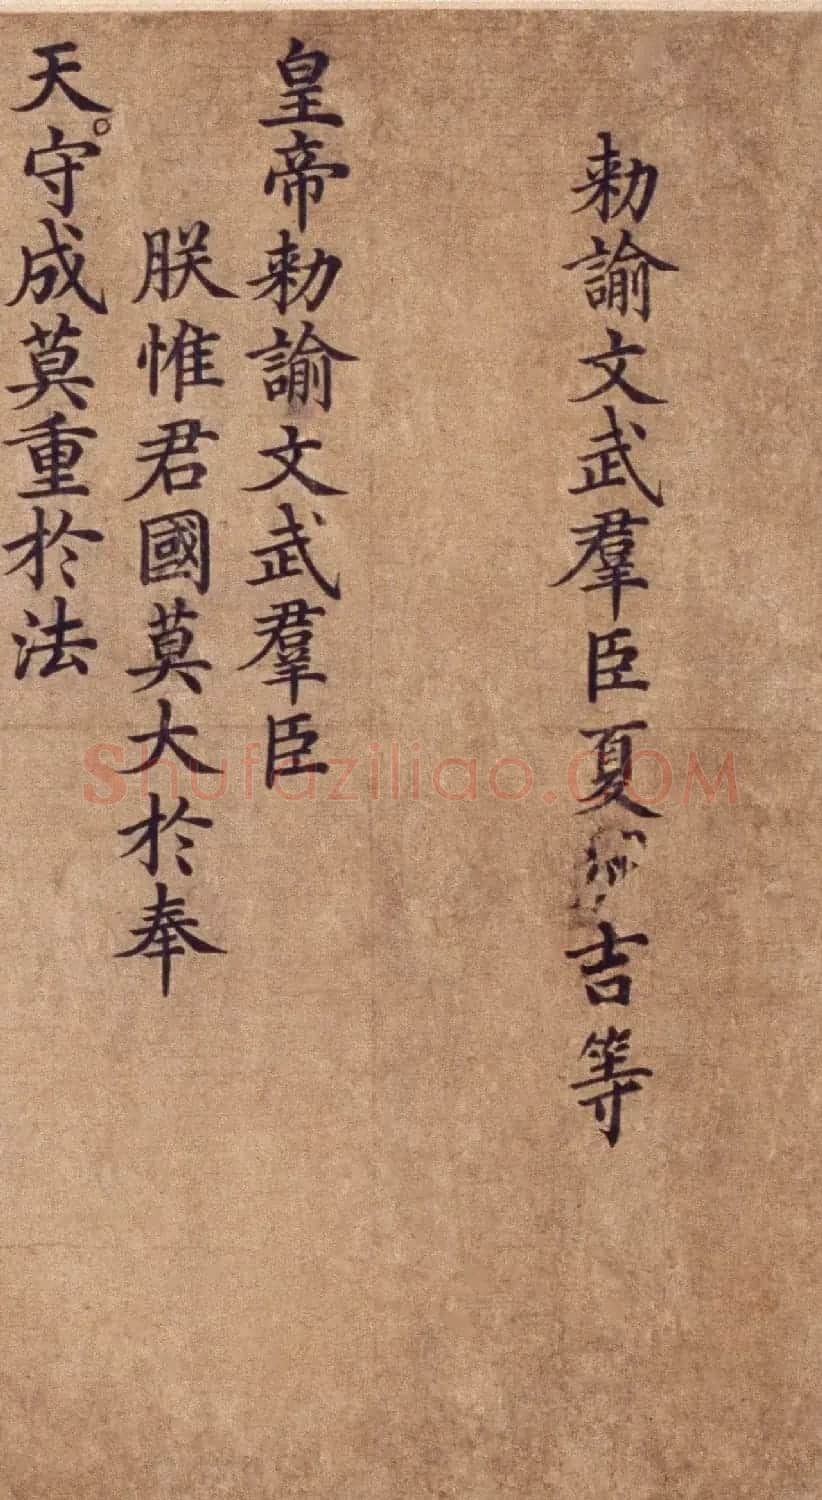 勑諭文武羣臣夏吉等
皇帝勑諭文武羣臣
朕惟君國莫大於奉
天。守成莫重於法
Shufaziliao.COM